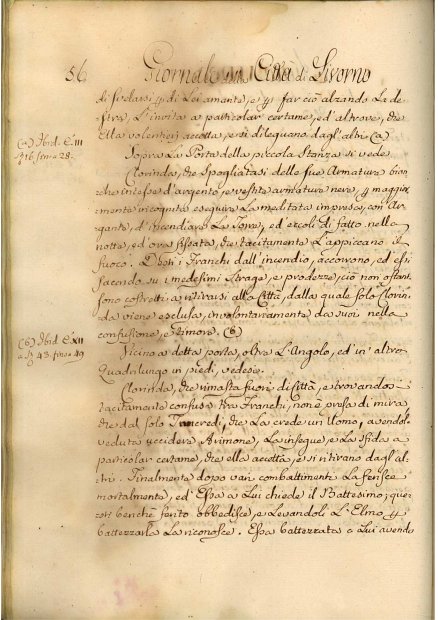 56 Giornale della Città di Livorno
di svelarsi p. di Lei amante, e p. far ciò alzando La de=
stra, L'invita a particolar certame, ed altrove, che
Ella volentieri accetta, e si dileguano dagl'altri (a)
(a) Ibid. C. III
Sopra La Porta della piccola Stanza si vede
Clorinda, che spogliatasi delle sue Armature bian
che inteste d'argento, e vestite armature nere, p. maggior
mente incognita eseguire La meditata impresa, con Ar
gante, d'incendiare La Torre, ed'eccoli di fatto nella
notte, ed'ora fissata, che tacitamente L'appiccano il
fuoco. Desti i Franchi dall'incendio, accorrono, ed essi
facendo su i medesimi strage, e prodezze, ciò non ostante
sono costretti a ritirarsi alla Città, dalla quale solo Clorin
da viene esclusa, involontariamente da suoi nella
confusione, e timore. (b)
(b) Ibid. C. XII
a St. 43. fino a 49
Vicino a detta porta, oltre L'Angolo, ed'in altro
Quadrilungo in piedi, vedesi.
Clorinda, che rimasta fuori di Città, e trovandosi
tacitamente confusa tra Franchi, non è presa di mira
che dal solo Tancredi, che La crede un Uomo, avendola
veduta uccidere Arimone, La insegue, e La sfida a
particolar certame, che ella accetta, e si ritirano dagl'al
tri. Finalmente dopo vari combattimenti La ferisce
mortalmente, ed'Essa a Lui chiede il Battesimo; que
sti benchè ferito obbedisce, e Levandoli L'Elmo p.
battezzarla La riconosce. Essa battezzata a Lui avendo